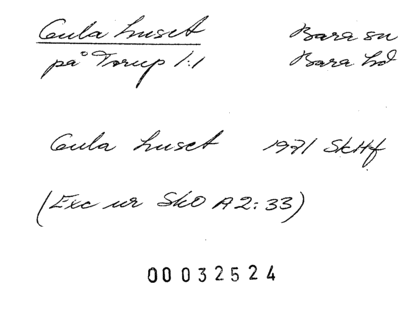 Gula huset Bara sn
på Torup 1:1 Bara hd
Gula huset 1971 SkHf
(Exc ur SkO A2:33)
00032524